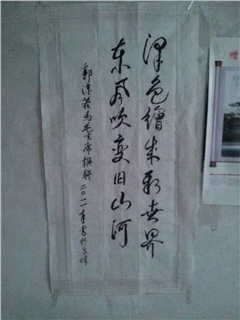 泽色繪成新世界
东风吹变旧山河
郭沫若为毛主席撰联 二〇一一年书于
赠